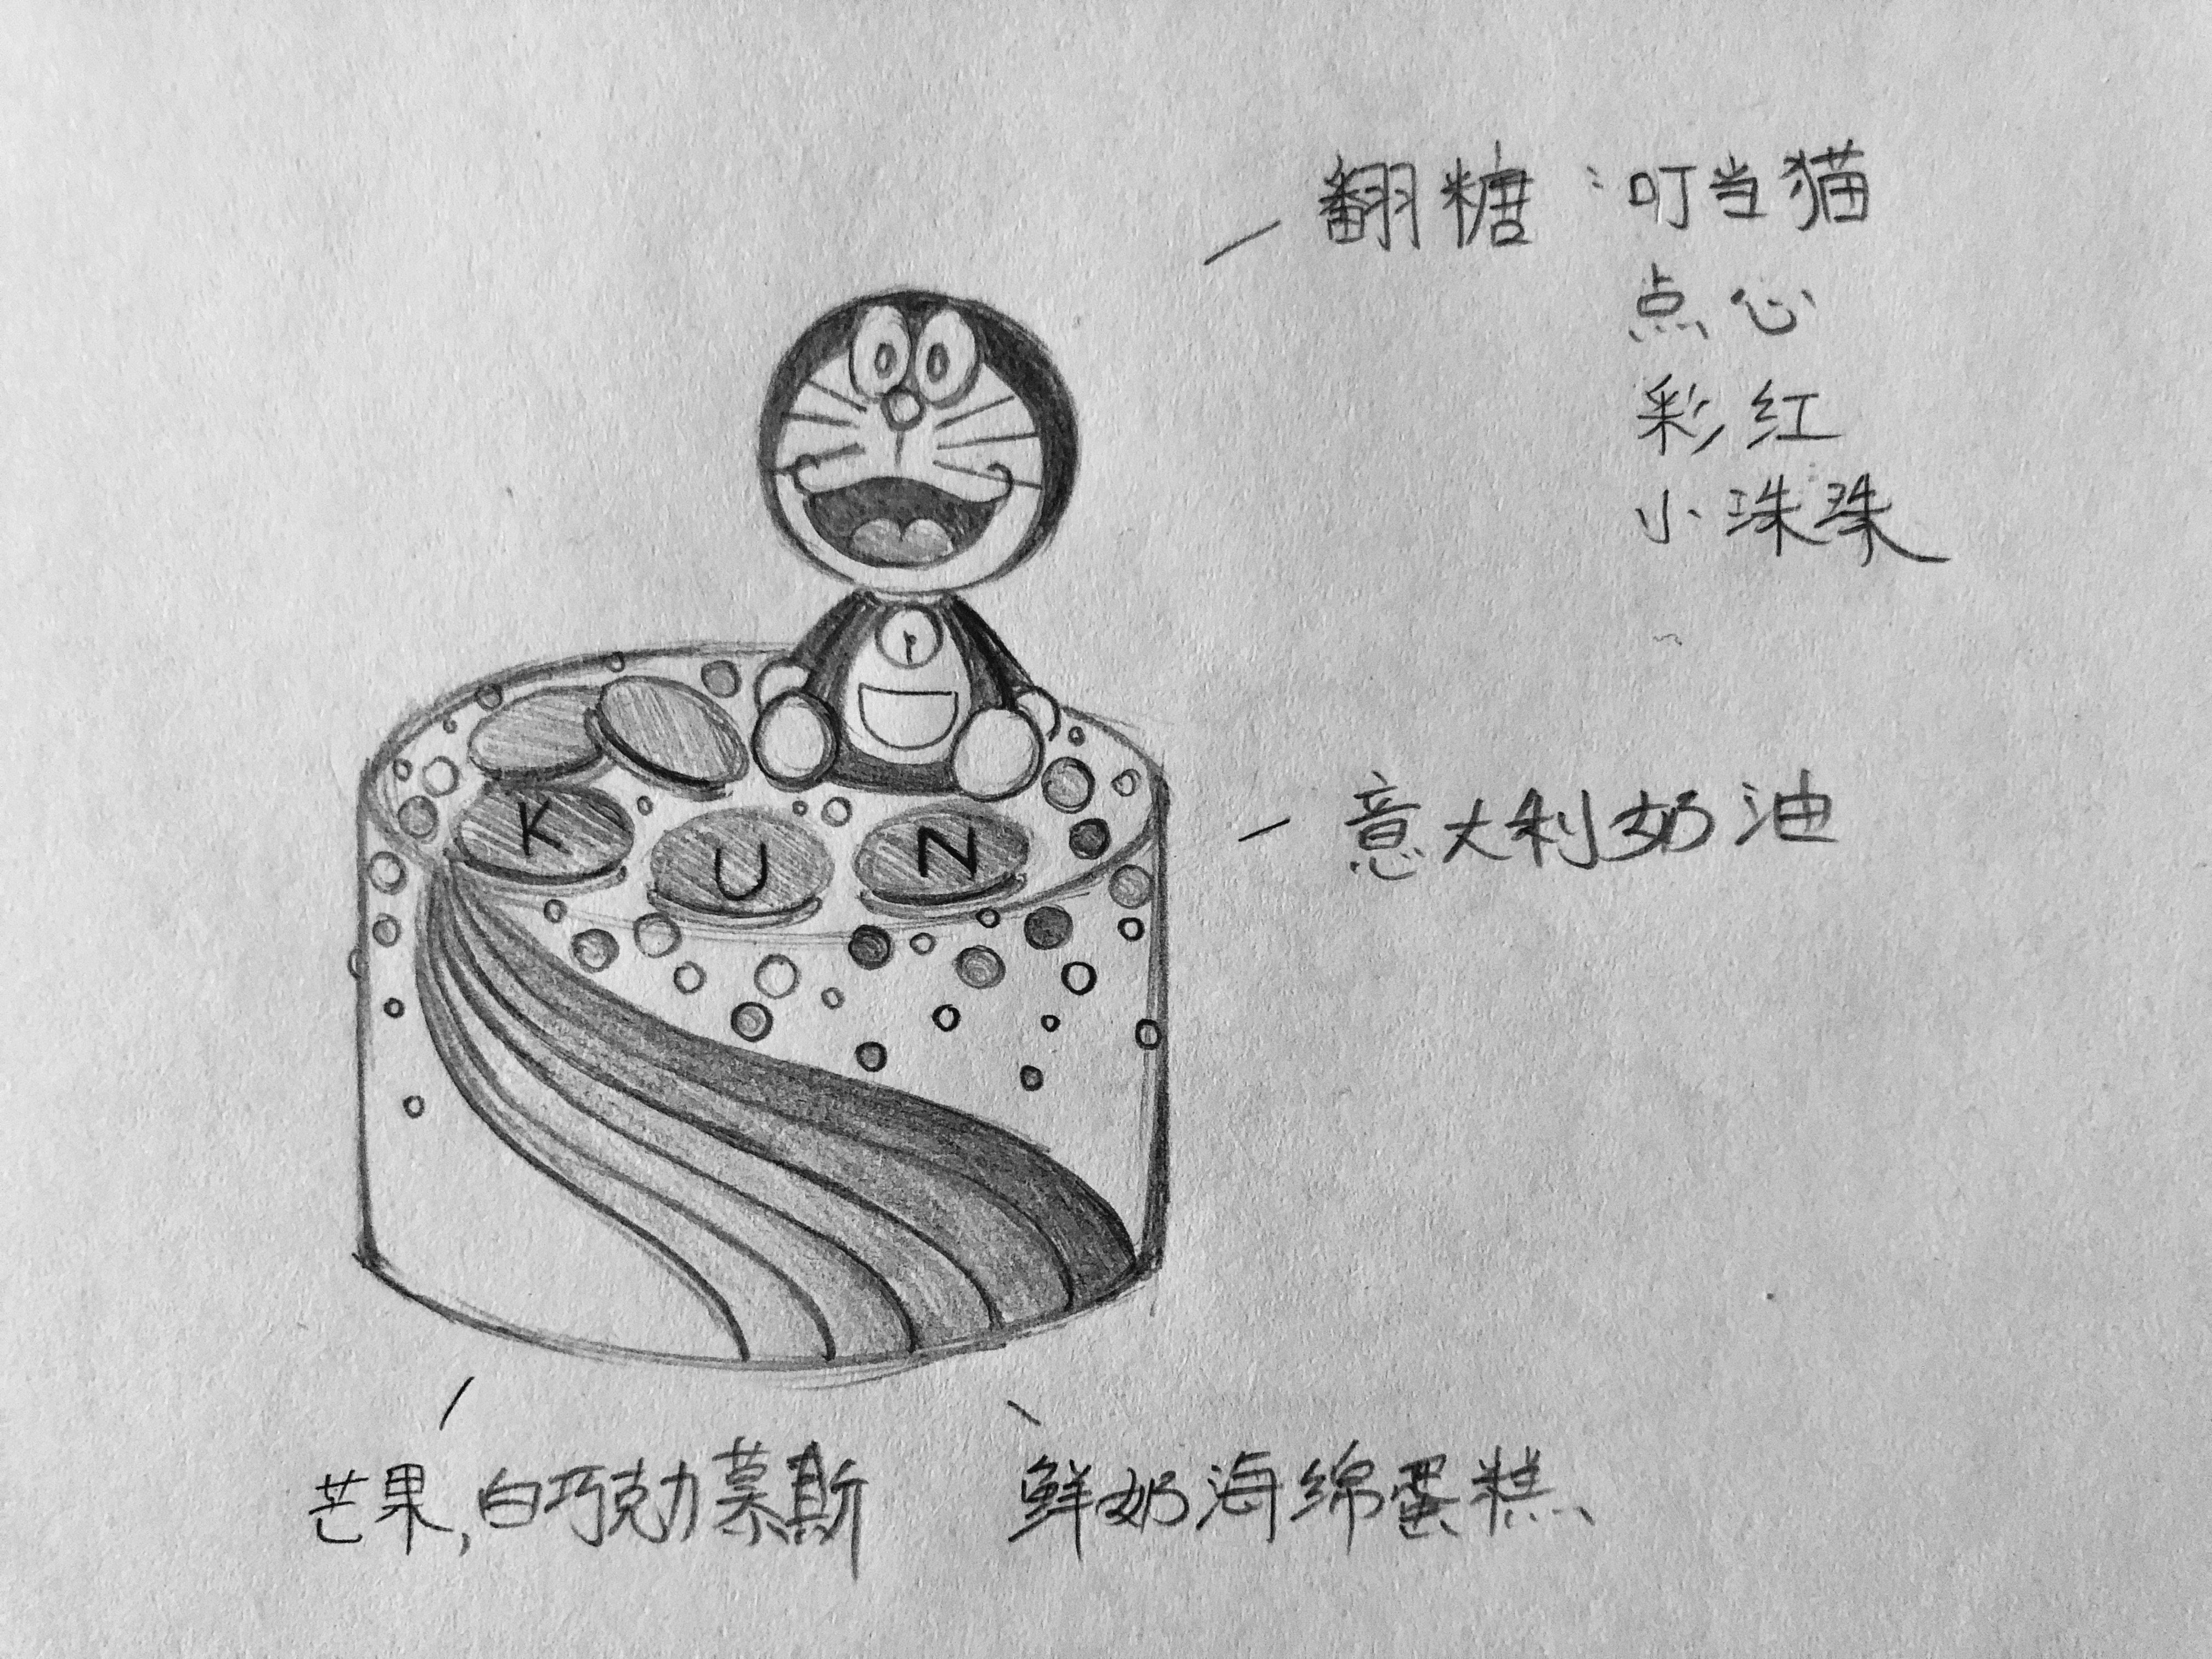 翻糖：叮当猫
点心
彩红
小珠珠
K U N
意大利奶油
芒果,白巧克力慕斯
鲜奶海绵蛋糕